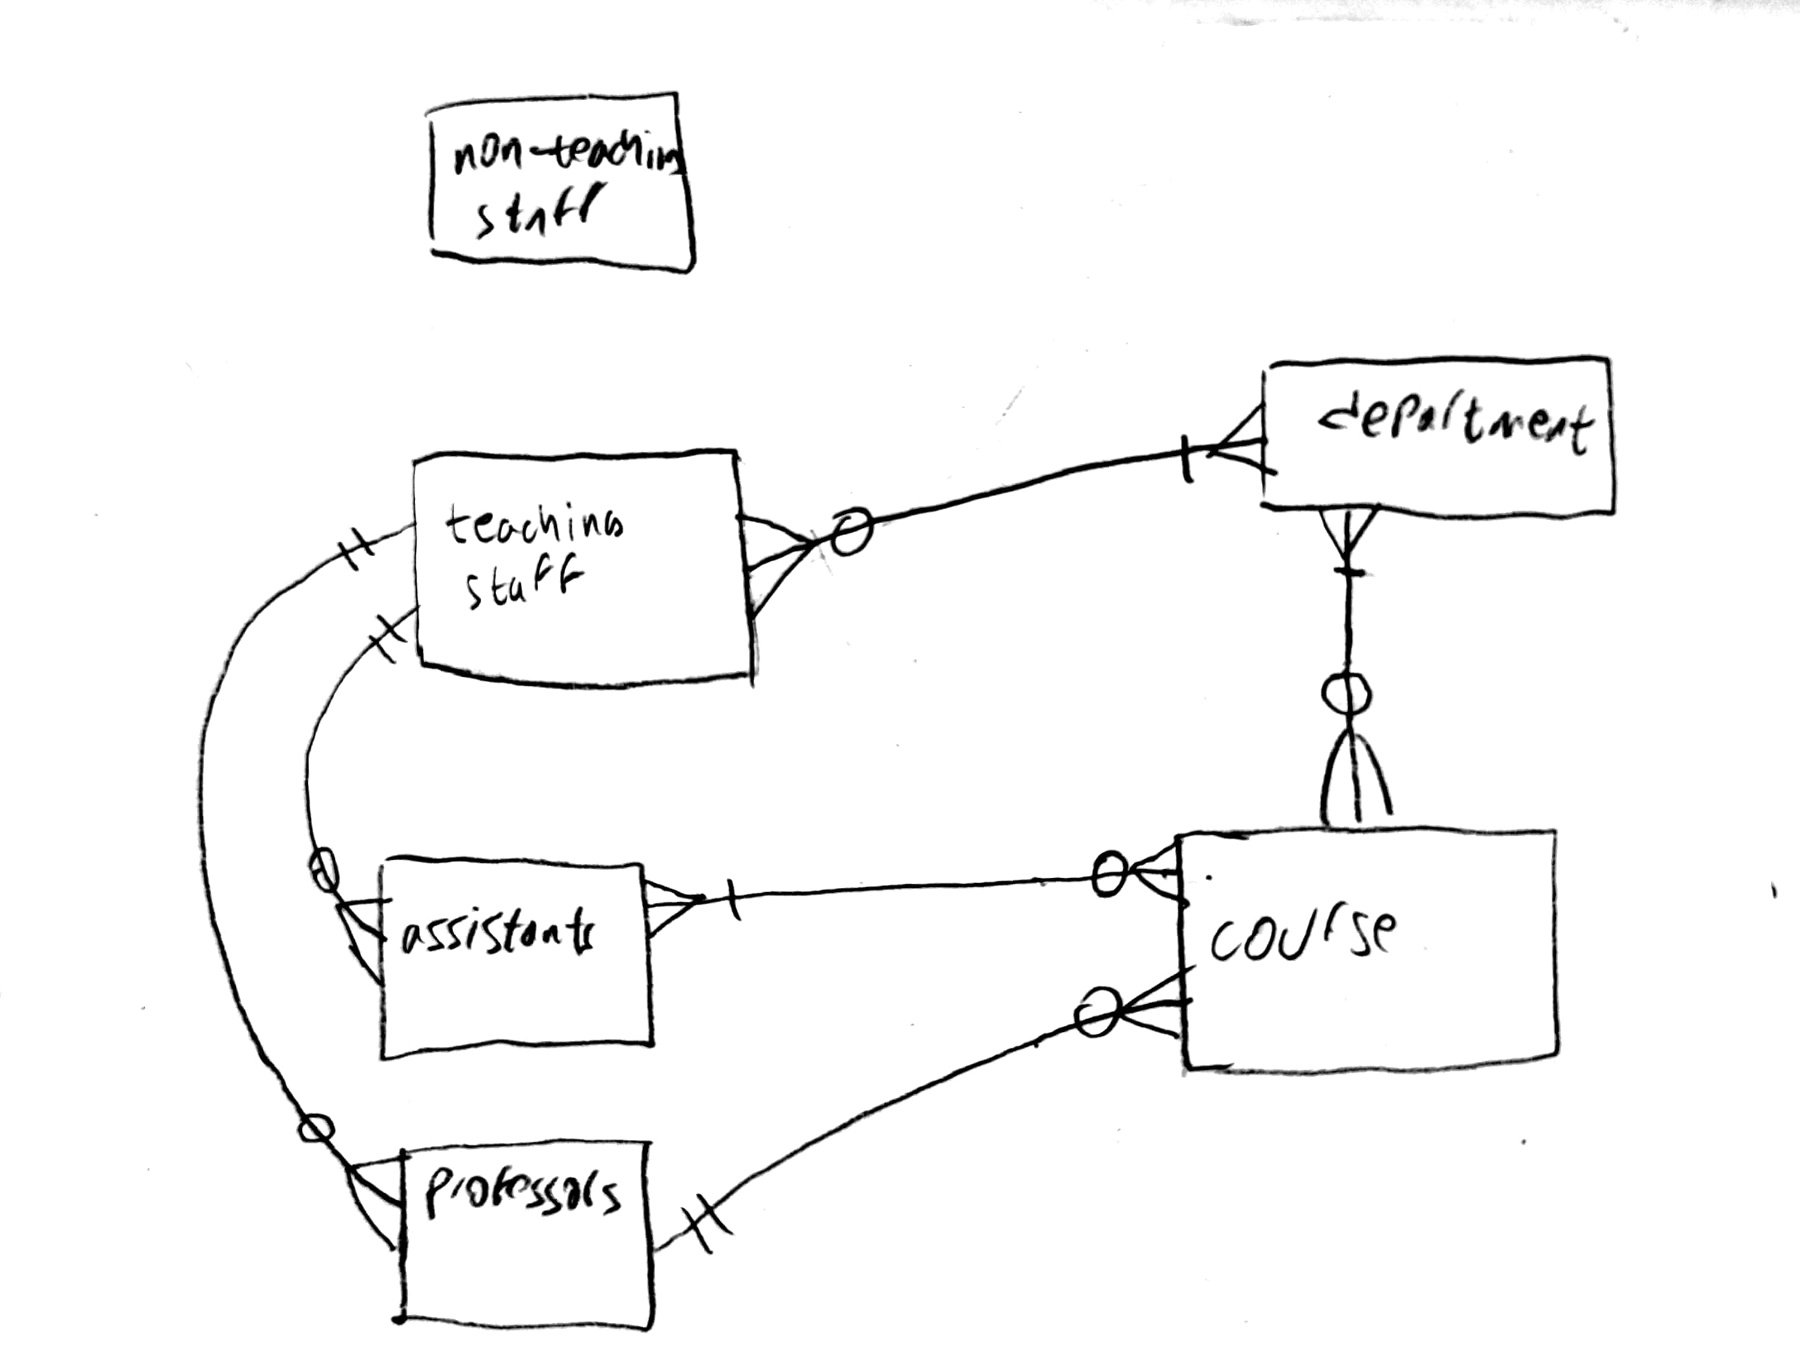 non-teachin
staff
department
teaching
staff
assistants
course
professors